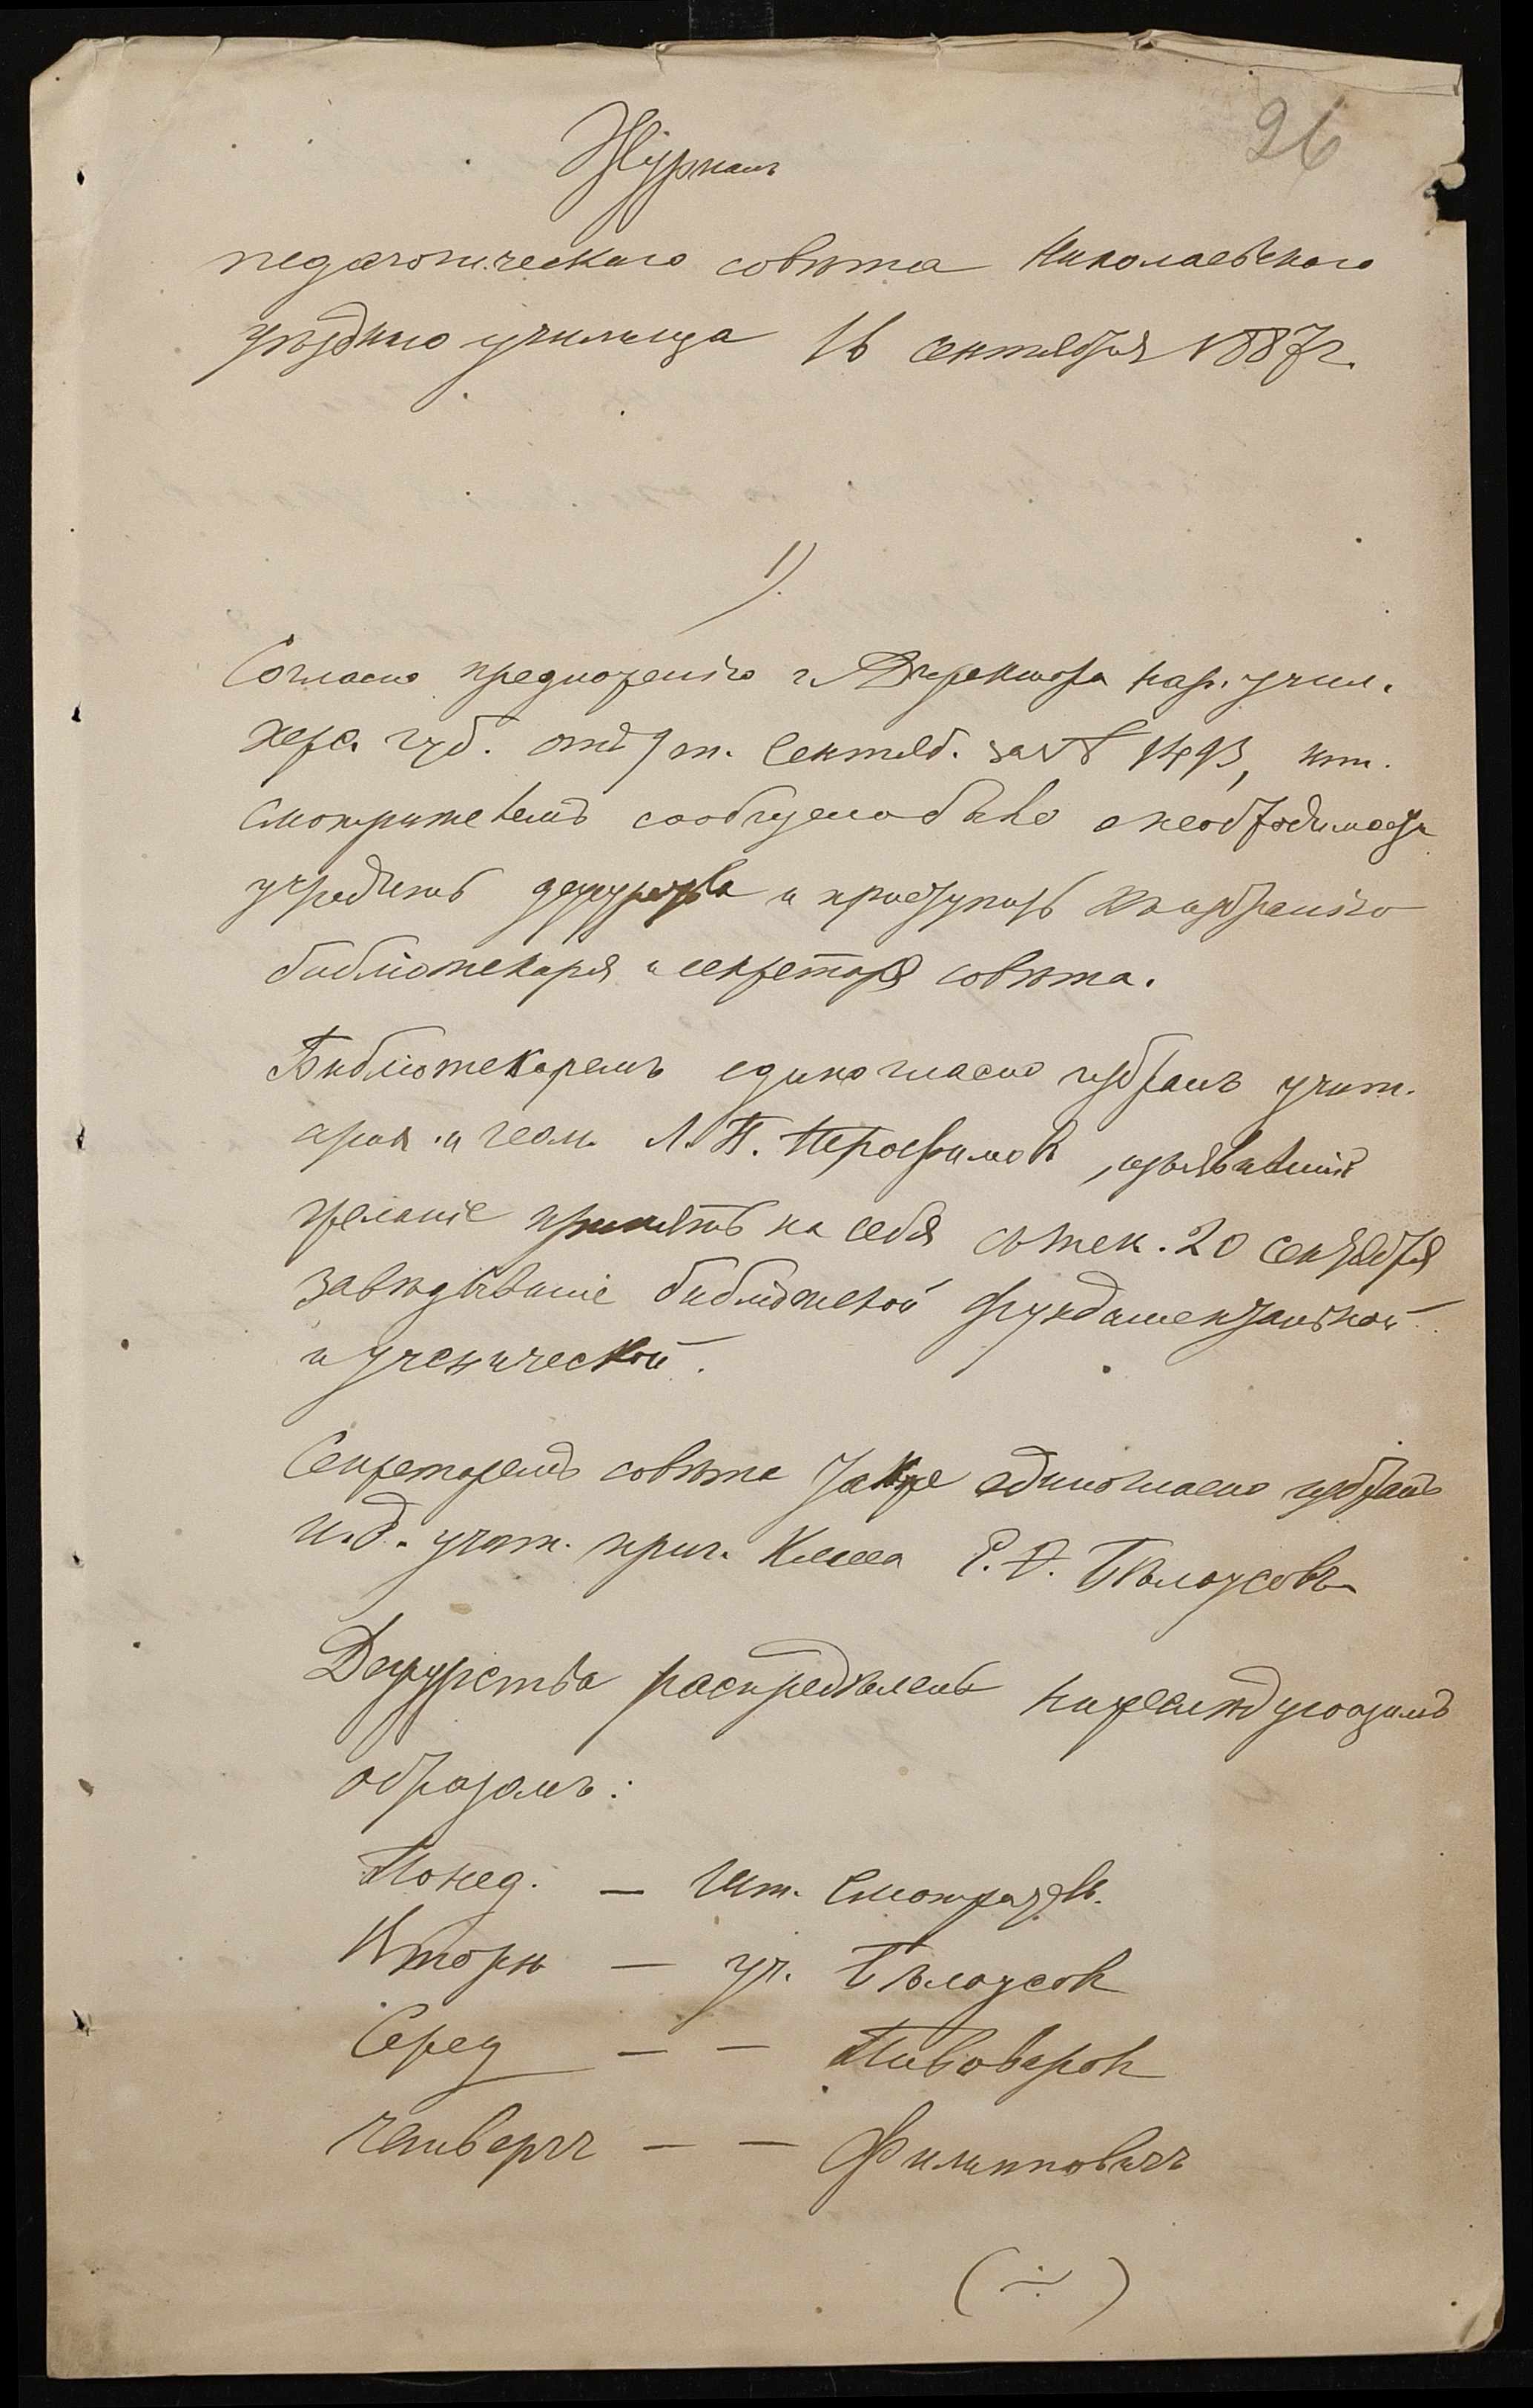 26
Журналъ
педагогическаго совѣта Николаевскаго
уѣзднаго училища 16 сентября 1887 г.
1).
Согласно предложенію г. Директора нар. учил.
херс. губ. отъ 9 т. Сентяб. за № 1493, шт.
смотрителемъ сообщено было о необходимости
учредить дежурства и приступить къ избранію
библіотекаря и секретаря совѣта.
Библіотекаремъ единогласно избранъ учит.
ариѳ. и геом. Л. Н. изъявившій
желаніе принять на себя съ тек. 20 сентября
завѣдываніе библіотекой фундаментальной
и ученической.
Секретаремъ совѣта также единогласно избранъ
и.д. учит. приг. класса Е. Ѳ. Бѣлоусовъ
Дежурства распредѣлены нижеслѣдующимъ
образомъ:
Понед. — Шт. Смотрит.
Вторн — уч. Бѣлоусов
Серед — — Пивоваров
Четвергъ — — Филипповичъ